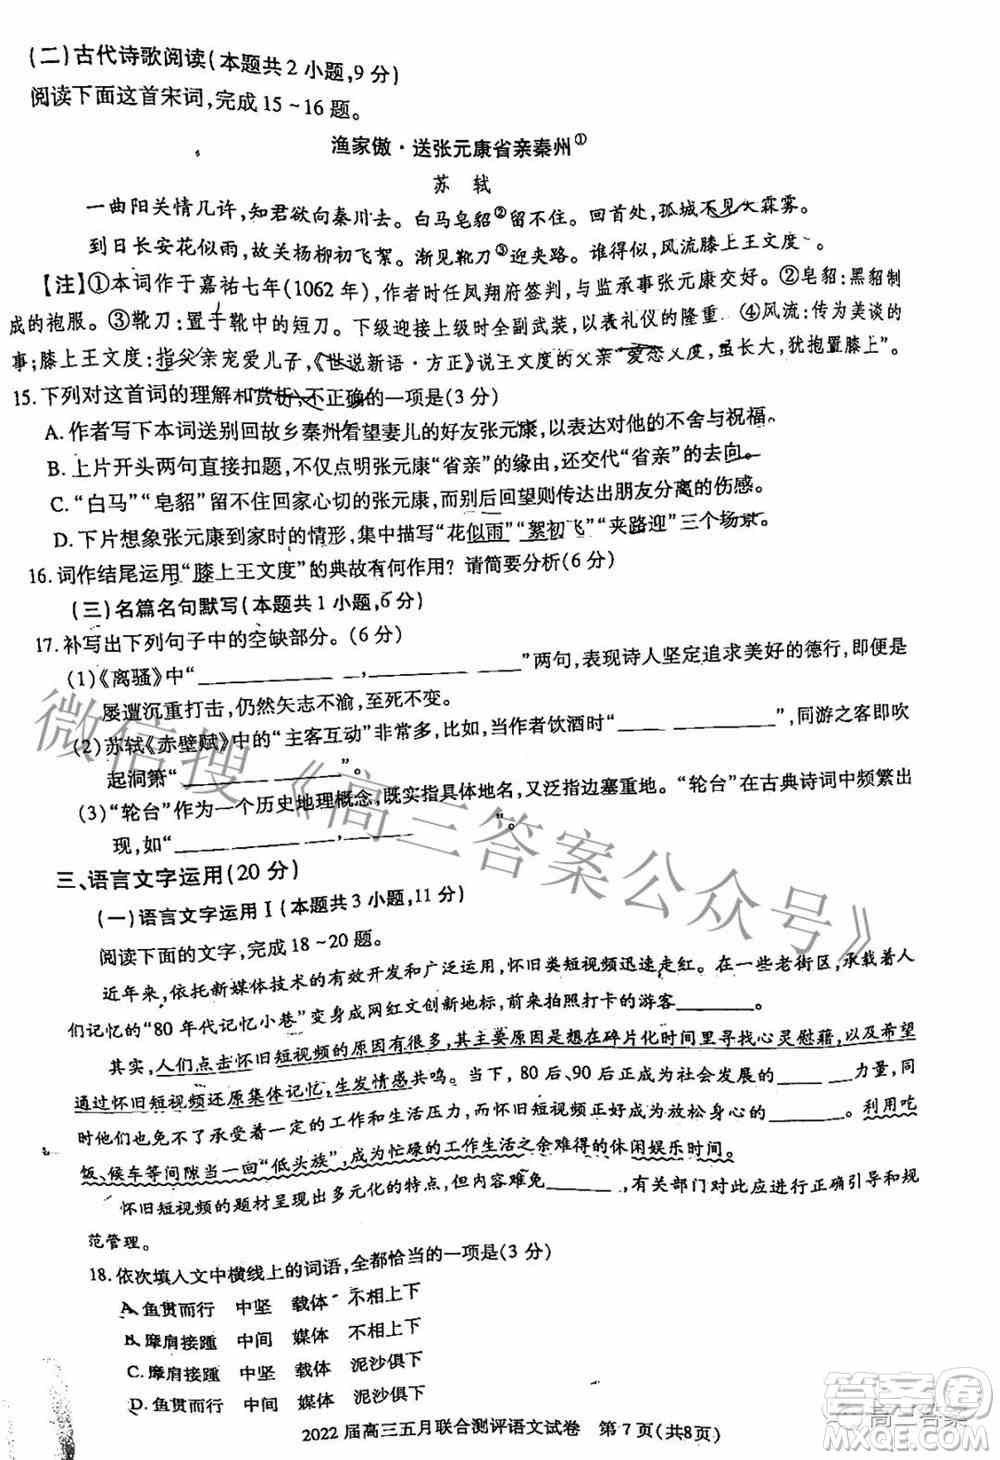 (二)古代诗歌阅读(本题共2小题,9分)
阅读下面这首宋词,完成15~16题。
渔家傲·送张元康省亲秦州①
苏 轼
一曲阳关情几许,知君欲向秦川去。白马皂貂②留不住。回首处,孤城不见天霖雾。
到日长安花似雨,故关杨柳初飞絮。渐见靴刀③迎夹路。谁得似,风流膝上王文度④。
【注】①本词作于嘉祐七年(1062年),作者时任凤翔府签判,与张元康交好。②皂貂:黑貂制
成的袍服。③靴刀:置于靴中的短刀。下级迎接上级时全副武装,以表礼仪的隆重。④风流:传为美谈的
事;膝上王文度:指父亲宠爱儿子,《世说新语·方正》说王文度的父亲“爱恋文度,虽长大,犹抱置膝上”。
15.下列对这首词的理解和赏析,不正确的一项是(3分)
A.作者写下本词送别回故乡秦州看望妻儿的好友张元康,以表达对他的不舍与祝福。
B.上片开头两句直接扣题,不仅点明张元康“省亲”的缘由,还交代“省亲”的去向。
C.“白马”“皂貂”留不住回家心切的张元康,而别后回望则传达出朋友分离的伤感。
D.下片想象张元康到家时的情形,集中描写“花似雨”“絮初飞”“夹路迎”三个场景。
16.词作结尾运用“膝上王文度”的典故有何作用?请简要分析(6分)
(三)名篇名句默写(本题共1小题,6分)
17.补写出下列句子中的空缺部分。(6分)
(1)《离骚》中“________,________”两句,表现诗人坚定追求美好的德行,即便是
屡遭沉重打击,仍然矢志不渝,至死不变。
(2)苏轼《赤壁赋》中的“主客互动”非常多,如当作者饮酒时“________”,同游之客即吹
起洞箫“________”。
(3)“轮台”作为一个历史地理概念,既实指具体地名,又泛指边塞重地。“轮台”在古典诗词中频繁出
现,如“________,________”。
三、语言文字运用(20分)
(一)语言文字运用Ⅰ(本题共3小题,11分)
阅读下面的文字,完成18~20题。
近年来,依托新媒体技术的开发和广泛运用,怀旧类短视频迅速走红。在一些老街区,承载人
们记忆的“80年代记忆小巷”变身成网红文创新地标,前来拍照打卡的游客________。
其实,人们点击怀旧短视频的原因有很多,其主要原因是想在碎片化时间里寻找心灵慰藉,以及希望
通过怀旧短视频还原集体记忆,生发情感共鸣。当下,80后、90后正成为社会发展的________力量,同
时他们也承受着一定的工作和生活压力,而怀旧短视频正好成为放松身心的________。利用吃
饭、候车等间隙当一回“低头族”,成为忙碌的工作生活之余难得的休闲娱乐时间。
怀旧短视频的题材呈现出多元化的特点,但内容难免________,有关部门对此应进行正确引导和规
范管理。
18.依次填入文中横线上的词语,全都恰当的一项是(3分)
A.鱼贯而行 中坚 载体 不相上下
B.摩肩接踵 中间 媒体 不相上下
C.摩肩接踵 中坚 载体 泥沙俱下
D.鱼贯而行 中间 媒体 泥沙俱下
2022届高三五月联合测评语文试卷 第7页(共8页)
微信搜《高三答案公众号》
高三答案